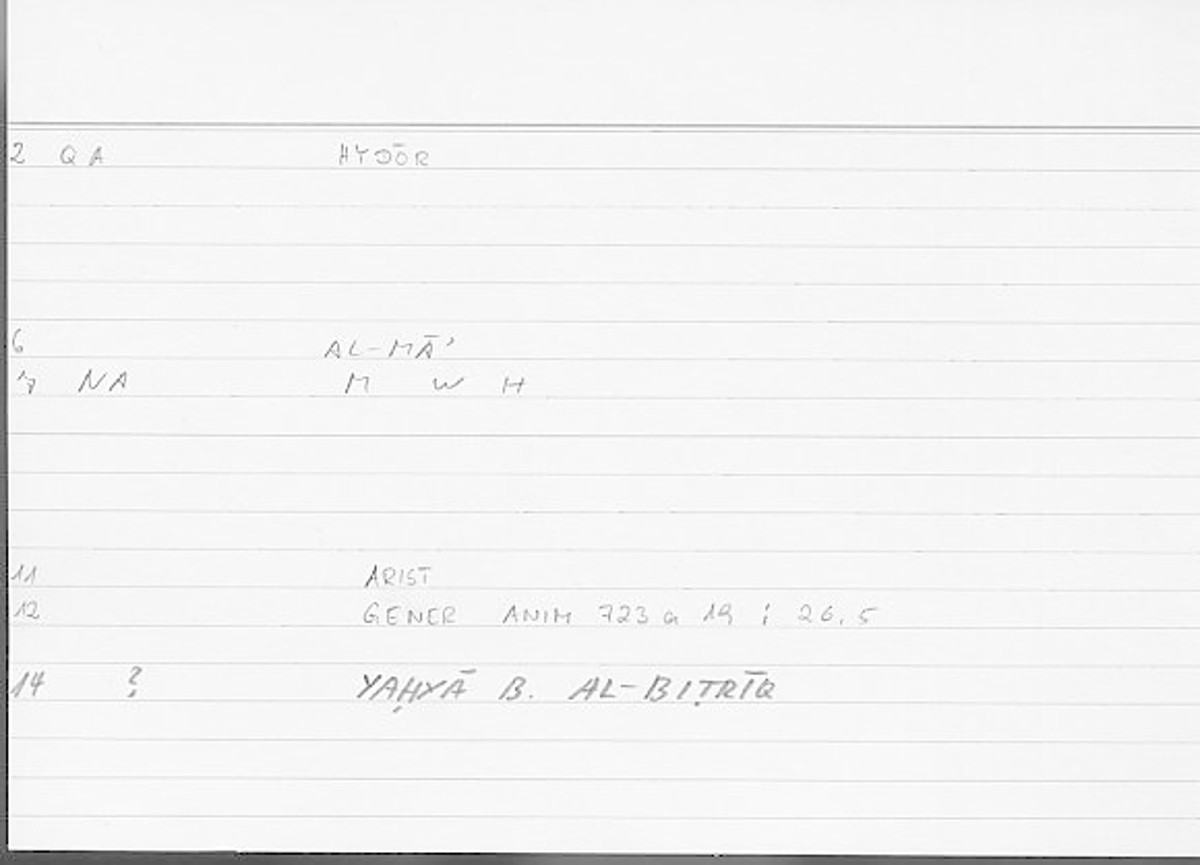 2 QA HYDŌR
6 AL-MĀʾ
7 NA M W H
11 ARIST
12 GENER ANIM 723 a 19 ; 26.5
14 ? YAḤYĀ B. AL-BIṬRĪQ